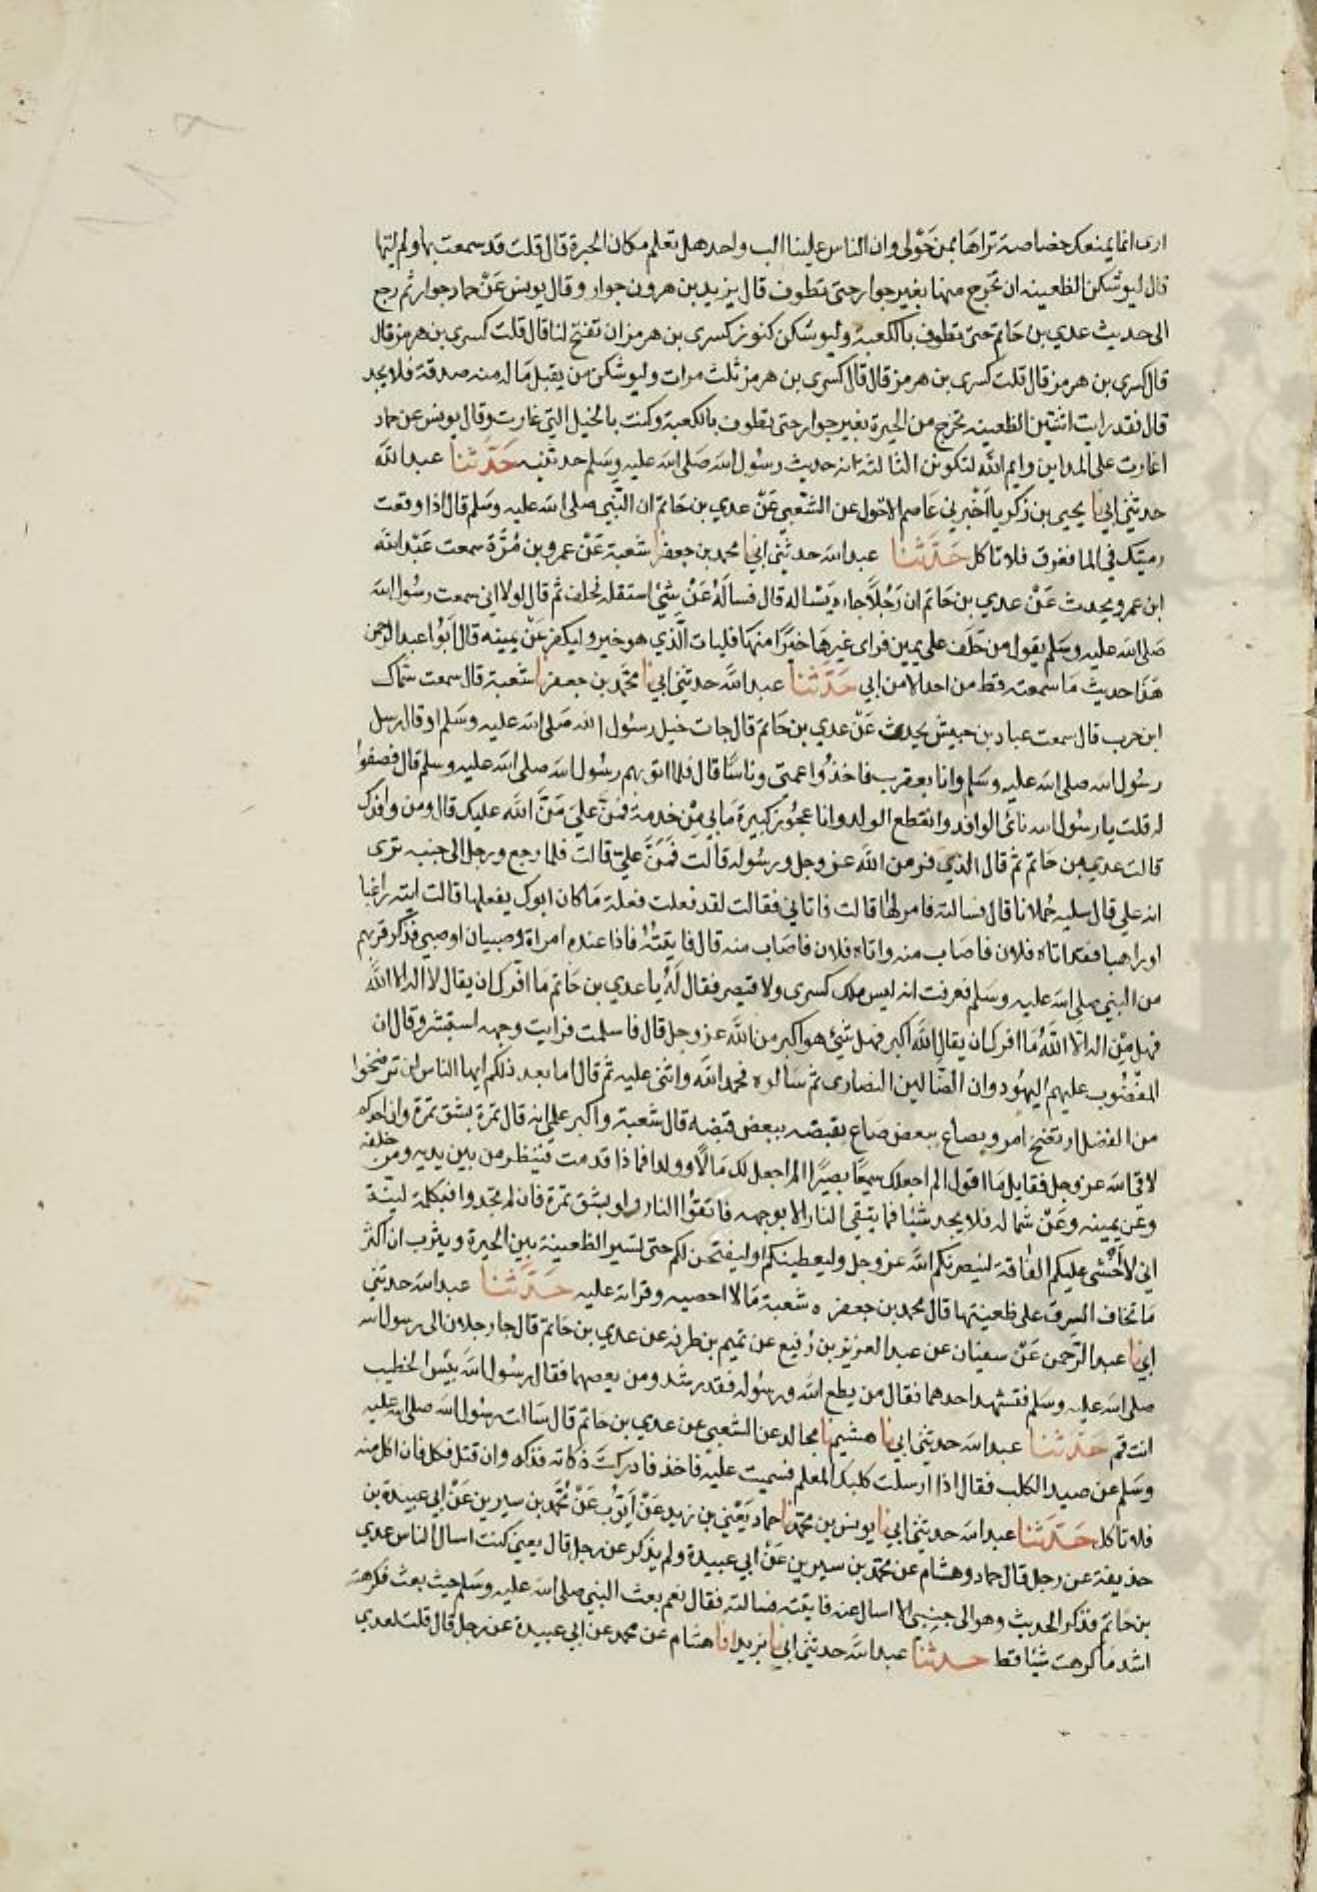 ارى انما يمنعك خصاصة تراها بمن حولي وان الناس علينا الب واحد هل تعلم مكان الحيرة قال قلت قد سمعت بها ولم اتها
قال ليوشكن الظعينه ان تخرج منها بغير جوار حتى تطوف قال يزيد بن هرون جوار وقال يونس عن حماد جوار ثم رجع
الى حديث عدي بن حاتم حتى تطوف بالكعبة وليوشكن كنوز كسرى بن هرمز ان تفتح لنا قال قلت كسرى بن هرمز قال
قال كسرى بن هرمز قال قلت كسرى بن هرمز قال قال كسرى بن هرمز ثلث مرات وليوشكن من يقبل ماله منه صدقة فلا يجد
قال فقد رايت اثنتين الظعينه تخرج من الحيرة بغير جوار حتى تطوف بالكعبة وكنت بالخيل التي غارت وقال يونس عن حماد
اغارت على المداين وايم الله لتكونن الثالثة انه حديث رسول الله صلى الله عليه وسلم حدثنيه حدثنا عبد الله
حدثني ابي نا يحيى بن زكريا اخبرني عاصم الاحول عن الشعبي عن عدي بن حاتم ان النبي صلى الله عليه وسلم قال اذا وقعت
رميتك في الما فغرق فلا تاكل حدثنا عبد الله حدثني ابي نا محمد بن جعفر نا شعبة عن عمرو بن مرة سمعت عبد الله
ابن عمرو يحدث عن عدي بن حاتم ان رجلا جاءه يساله قال فساله عن شئ استقله فحلف ثم قال لولا اني سمعت رسول الله
صلى الله عليه وسلم يقول من حلف على يمين فراى غيرها خيرا منها فليات الذي هو خير وليكفر عن يمينه قال ابو عبد الرحمن
هذا حديث ما سمعته قط من احد الا من ابي حدثنا عبد الله حدثني ابي نا محمد بن جعفر نا شعبة قال سمعت سماك
ابن حرب قال سمعت عباد بن حبيش يحدث عن عدي بن حاتم قال جات خيل رسول الله صلى الله عليه وسلم او قال رسل
رسول الله صلى الله عليه وسلم وانا بعقرب فاخذوا عمتي وناسا قال فلما اتوا بهم رسول الله صلى الله عليه وسلم قال فصفوا
له قلت يا رسول الله نائ الوافد وانقطع الولد وانا عجوز كبيرة ما بي من خدمة فمن علي من الله عليك قال ومن وافدك
قالت عدي بن حاتم ثم قال الذي فر من الله عز وجل ورسوله قالت فمن علي قالت فلما رجع ورجل الى جنبه ترى
انه علي قال سليه حملانا قال فسالته فامر لها قالت فاتاني فقالت لقد فعلت فعلة ما كان ابوك يفعلها قالت ايته راغبا
او راهبا فقد اتاه فلان فاصاب منه واتاه فلان فاصاب منه قال فايتته فاذا عنده امراة وصبيان او صبي فذكر قربهم
من النبي صلى الله عليه وسلم فعرفت انه ليس ملك كسرى ولا قيصر فقال له يا عدي بن حاتم ما افرك ان يقال لا اله الا الله
فهل من اله الا الله ما افرك ان يقال الله اكبر فهل شئ هو اكبر من الله عز وجل قال فاسلمت فرايت وجهه استبشر وقال ان
المغضوب عليهم اليهود وان الضالين النصارى ثم سالوه فحمد الله واثنى عليه ثم قال اما بعد ذلكم ايها الناس ان ترضخوا
من الفضل ارتضخ امرو بصاع ببعض صاع بقبضه ببعض قبضه قال شعبة واكبر علمي انه قال تمرة بشق تمرة وان احدكم
لاقي الله عز وجل فقايل ما اقول الم اجعلك سميعا بصيرا الم اجعل لك مالا وولدا فماذا قدمت فينظر من بين يديه ومن خلفه
وعن يمينه وعن شماله فلا يجد شيئا فما يتقي النار الا بوجهه فاتقوا النار ولو بشق تمرة فان لم تجدوا فبكلمة لينة
اني لا اخشى عليكم الفاقة لينصرنكم الله عز وجل وليعطينكم او ليفتحن لكم حتى تسير الظعينة بين الحيرة ويثرب ان اكثر
ما تخاف السرق على ظعينتها قال محمد بن جعفر ه شعبة ما لا احصيه وقراته عليه حدثنا عبد الله حدثني
ابي نا عبد الرحمن عن سفيان عن عبد العزيز بن رفيع عن تميم بن طرفة عن عدي بن حاتم قال جا رجلان الى رسول الله
صلى الله عليه وسلم فتشهد احدهما فقال من يطع الله ورسوله فقد رشد ومن يعصهما فقال رسول الله بئس الخطيب
انت قم حدثنا عبد الله حدثني ابي نا هشيم نا مجالد عن الشعبي عن عدي بن حاتم قال سالت رسول الله صلى الله عليه
وسلم عن صيد الكلب فقال اذا ارسلت كلبك المعلم فسميت عليه فاخذ فادركت ذكاته فذكه وان قتل فكل فان اكل منه
فلا تاكل حدثنا عبد الله حدثني ابي نا يونس بن محمد نا حماد يعني بن زيد عن ايوب عن محمد بن سيرين عن ابي عبيدة بن
حذيفة عن رجل قال حماد وهشام عن محمد بن سيرين عن ابي عبيدة ولم يذكر عن رجل قال يعني كنت اسال الناس عدي
بن حاتم فذكر الحديث وهو الى جنبي لا اسال عنه فايتته فسالته فقال نعم بعث النبي صلى الله عليه وسلم حيث بعث فكرهته
اشد ما كرهت شيئا قط حدثنا عبد الله حدثني ابي نا يزيد انا هشام عن محمد عن ابي عبيدة عن رجل قال قلت لعدي